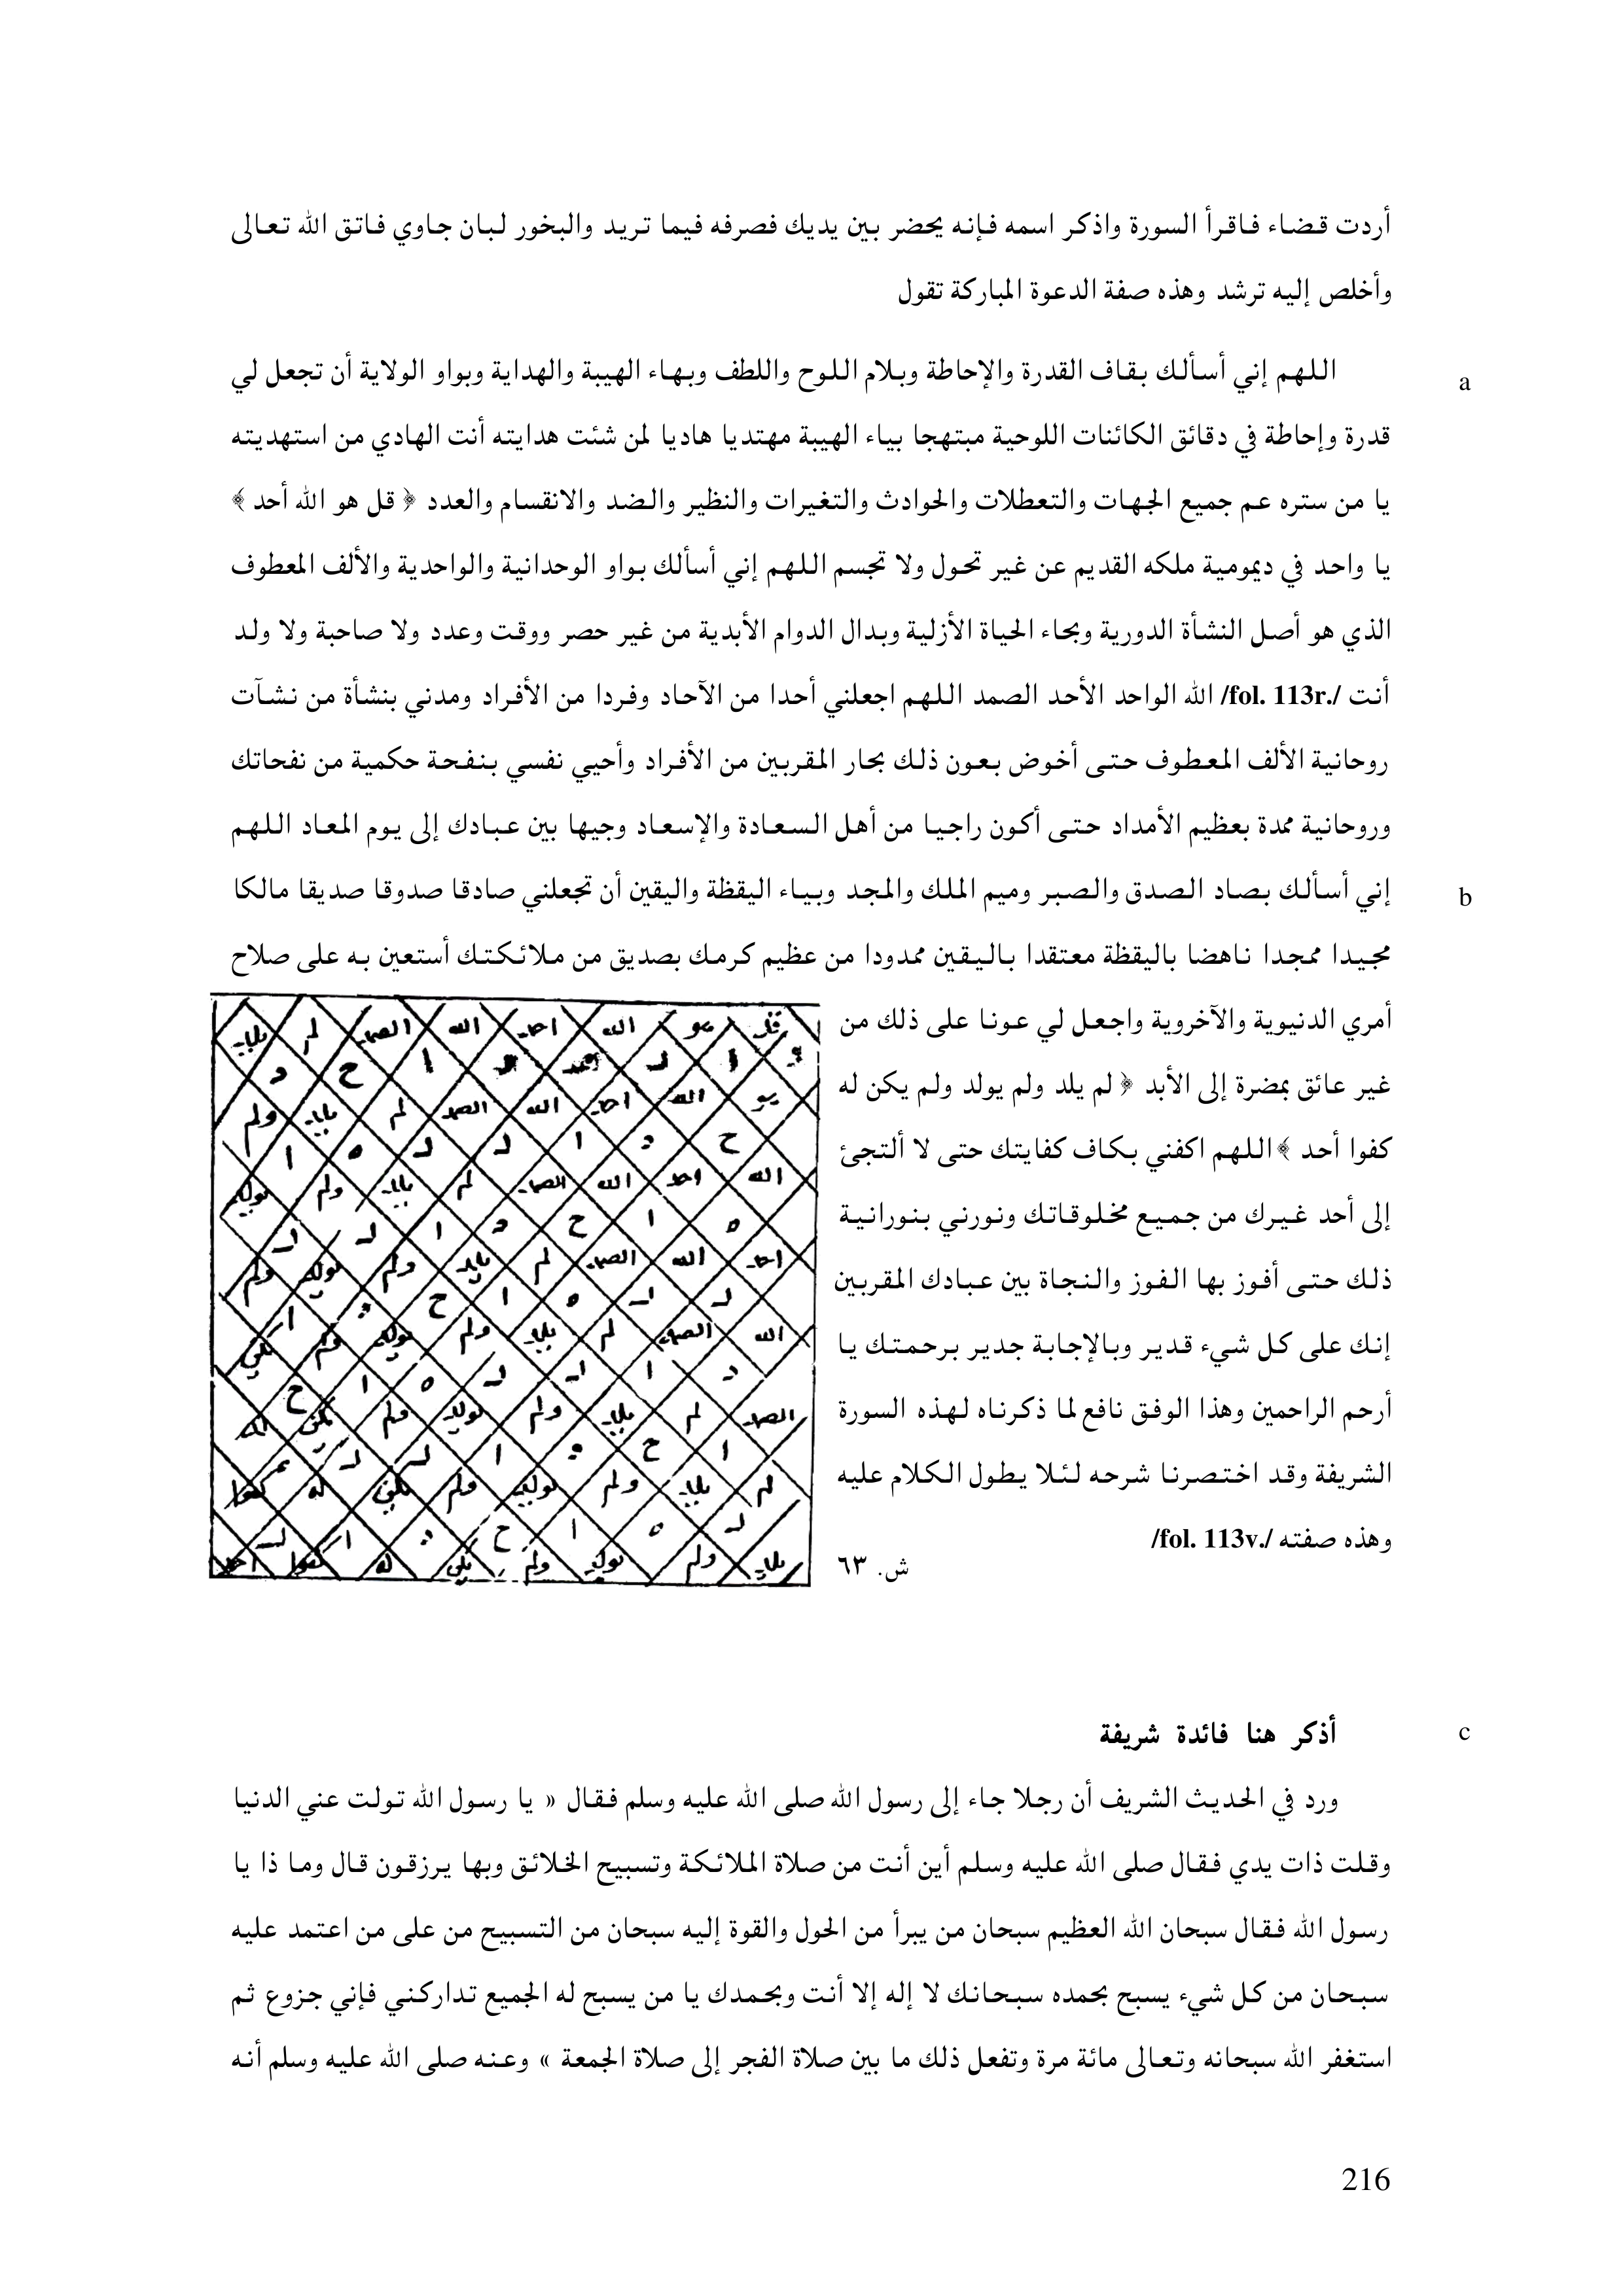 أردت قضاء فاقرأ السورة واذكر اسمه فإنه يحضر بين يديك فصرفه فيما تريد والبخور لبان جاوي فاتق الله تعالى
وأخلص إليه ترشد وهذه صفة الدعوة المباركة تقول
a
اللهم إني أسألك بقاف القدرة والإحاطة وبلام اللوح واللطف وبهاء الهيبة والهداية وبواو الولاية أن تجعل لي
قدرة وإحاطة في دقائق الكائنات اللوحية مبتهجا بياء الهيبة مهتديا هاديا لمن شئت هدايته أنت الهادي من استهديته
يا من ستره عم جميع الجهات والتعطلات والحوادث والتغيرات والنظير والضد والانقسام والعدد ﴿ قل هو الله أحد ﴾
يا واحد في ديمومية ملكه القديم عن غير تحول ولا تجسم اللهم إني أسألك بواو الوحدانية والواحدية والألف المعطوف
الذي هو أصل النشأة الدورية وبحاء الحياة الأزلية وبدال الدوام الأبدية من غير حصر ووقت وعدد ولا صاحبة ولا ولد
أنت /fol. 113r./ الله الواحد الأحد الصمد اللهم اجعلني أحدا من الآحاد وفردا من الأفراد ومدني بنشأة من نشآت
روحانية الألف المعطوف حتى أخوض بعون ذلك بحار المقربين من الأفراد وأحيي نفسي بنفحة حكمية من نفحاتك
وروحانية ممدة بعظيم الأمداد حتى أكون راجيا من أهل السعادة والإسعاد وجيها بين عبادك إلى يوم المعاد اللهم
b
إني أسألك بصاد الصدق والصبر وميم الملك والمجد وبياء اليقظة واليقين أن تجعلني صادقا صدوقا صديقا مالكا
مجيدا ممجدا ناهضا باليقظة معتقدا باليقين ممدودا من عظيم كرمك بصديق من ملائكتك أستعين به على صلاح
أمري الدنيوية والآخروية واجعل لي عونا على ذلك من
غير عائق بمضرة إلى الأبد ﴿ لم يلد ولم يولد ولم يكن له
كفوا أحد ﴾اللهم اكفني بكاف كفايتك حتى لا ألتجئ
إلى أحد غيرك من جميع مخلوقاتك ونورني بنورانية
ذلك حتى أفوز بها الفوز والنجاة بين عبادك المقربين
إنك على كل شيء قدير وبالإجابة جدير برحمتك يا
أرحم الراحمين وهذا الوفق نافع لما ذكرناه لهذه السورة
الشريفة وقد اختصرنا شرحه لئلا يطول الكلام عليه
وهذه صفته /fol. 113v./
ش. ٦٣
قل هو الله احد الله الصمد لم يلد
هو الله احد الله الصمد لم يلد ولم
ح د ا ل ل ه ا
الله احد الله الصمد لم يلد ولم يولد
ه ا ح د ا ل ل
احد الله الصمد لم يلد ولم يولد ولم
الله الصمد لم يلد ولم يولد ولم يكن
د ا ل ل ه ا ح
الصمد لم يلد ولم يولد ولم يكن له
لم يلد ولم يولد ولم يكن له كفوا
يلد ولم يولد ولم يكن له كفوا احد
c
أذكر هنا فائدة شريفة
ورد في الحديث الشريف أن رجلا جاء إلى رسول الله صلى الله عليه وسلم فقال « يا رسول الله تولت عني الدنيا
وقلت ذات يدي فقال صلى الله عليه وسلم أين أنت من صلاة الملائكة وتسبيح الخلائق وبها يرزقون قال وما ذا يا
رسول الله فقال سبحان الله العظيم سبحان من يبرأ من الحول والقوة إليه سبحان من التسبيح من على من اعتمد عليه
سبحان من كل شيء يسبح بحمده سبحانك لا إله إلا أنت وبحمدك يا من يسبح له الجميع تداركني فإني جزوع ثم
استغفر الله سبحانه وتعالى مائة مرة وتفعل ذلك ما بين صلاة الفجر إلى صلاة الجمعة » وعنه صلى الله عليه وسلم أنه
216